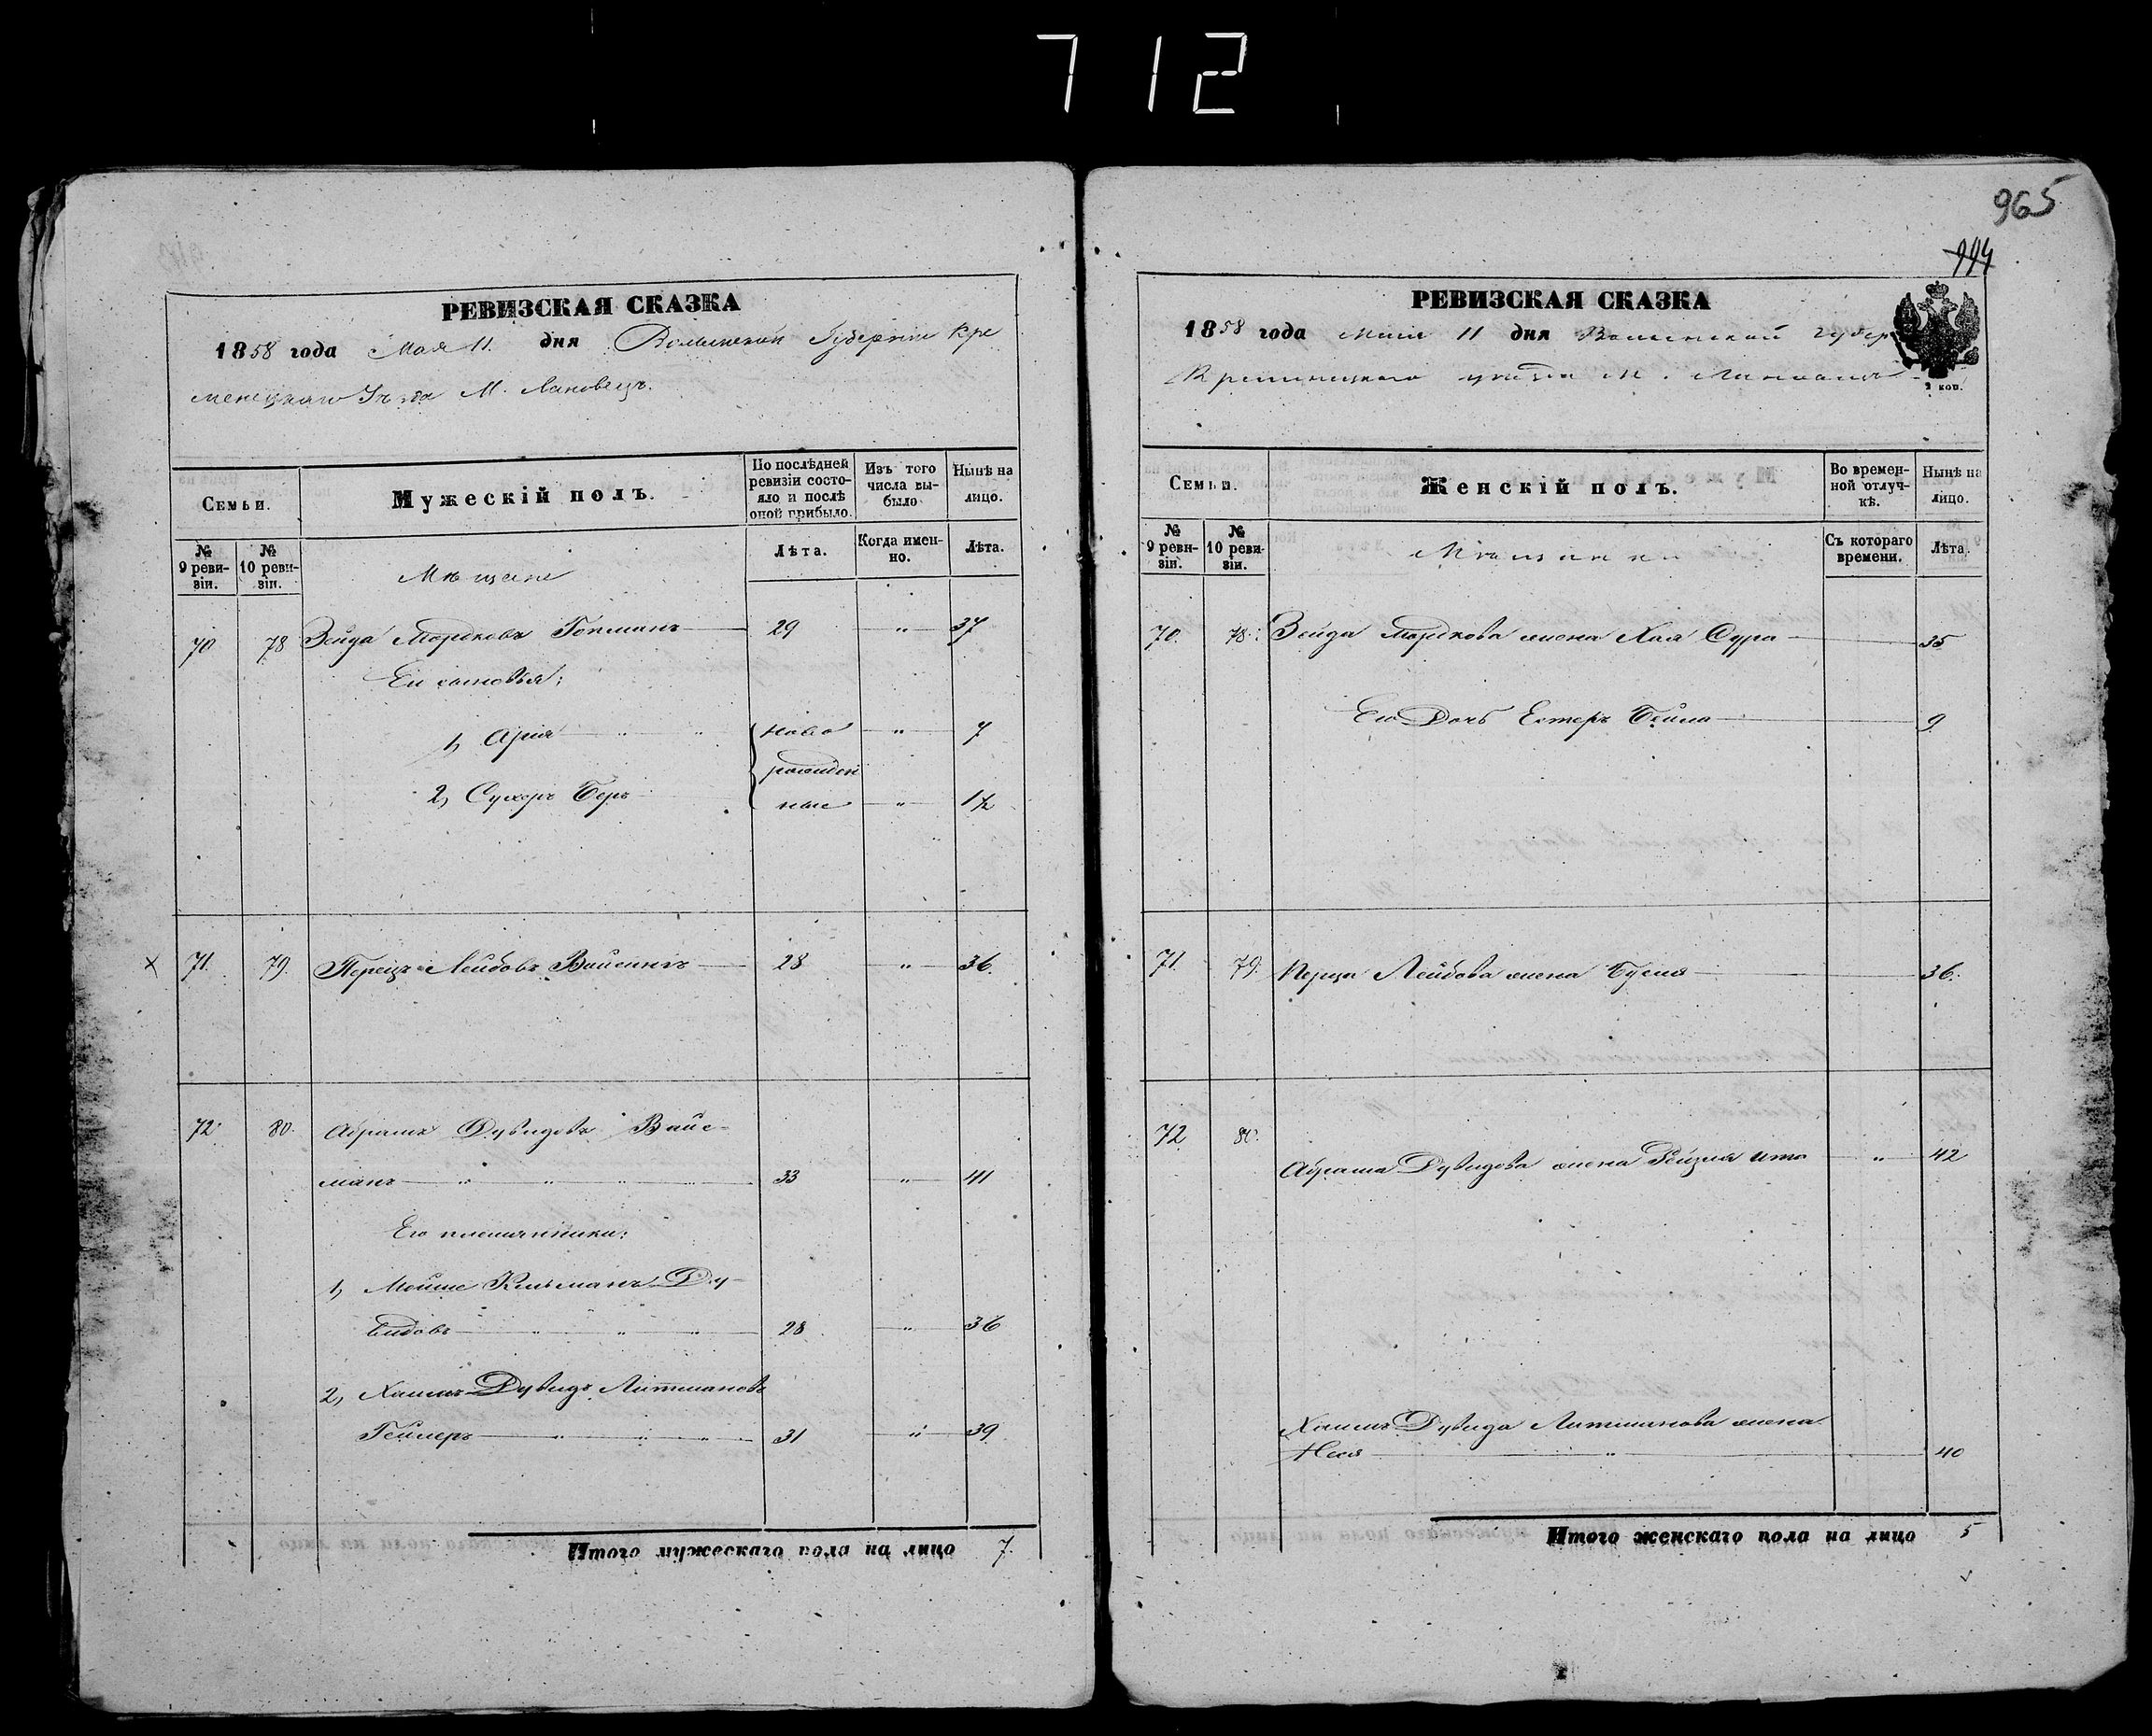 712
РЕВИЗСКАЯ СКАЗКА
1858 года Мая 11. дня Волынской Губернiи Кре
менецкаго Уѣзда М. Лановецъ.
Семьи.
Мужескій полъ.
По послѣдней ревизіи состояло и послѣ оной прибыло.
Изъ того числа выбыло
Нынѣ на лицо.
№ 9 ревизіи.
№ 10 ревизіи.
Мѣщане
Лѣта.
Когда именно.
Лѣта.
70 78 Зейда Мордковъ Гокманъ 29 " 37
Его сыновья:
1, Арія " " ново " 7
рожден
2, Сухеръ Беръ ные " 1½
× 71. 79. Перецъ Лейбовъ Вайснигъ 28 " 36.
72. 80. Абрамъ Дувидовъ Вайс-
манъ " " " " 33 " 41
Его племянники:
1, Мойше Кельманъ Ду-
видовъ " " " 28 " 36
2, Хаимъ Дувидъ Литмановъ
Геллеръ " " " 31 " 39
Итого мужескаго пола на лицо 7.
965
994
РЕВИЗСКАЯ СКАЗКА
1858 года Мая 11 дня Волынской Губер
Кременецкаго уѣзда М.
2 коп.
Семьи.
Женскій полъ.
Во временной отлучкѣ.
Нынѣ на лицо.
№ 9 ревизіи.
№ 10 ревизіи.
Мѣщанки
Съ котораго времени.
Лѣта.
70. 78. Зейда Мордкова жена Хая Сура 35
Его Дочь Естеръ Бейла 9
71. 79. Перца Лейбова жена Бусия 36.
72 80. Абрама Дувидова жена Рейзля Ита " 42
Хаимъ Дувида Литманова жена
Неся " 40
Итого женскаго пола на лицо 5